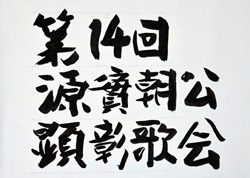 第14回
源實朝公
顕彰歌会